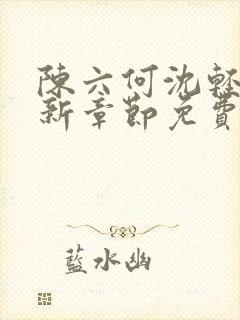 陳六何沈輕
新章節免費
藍水幽